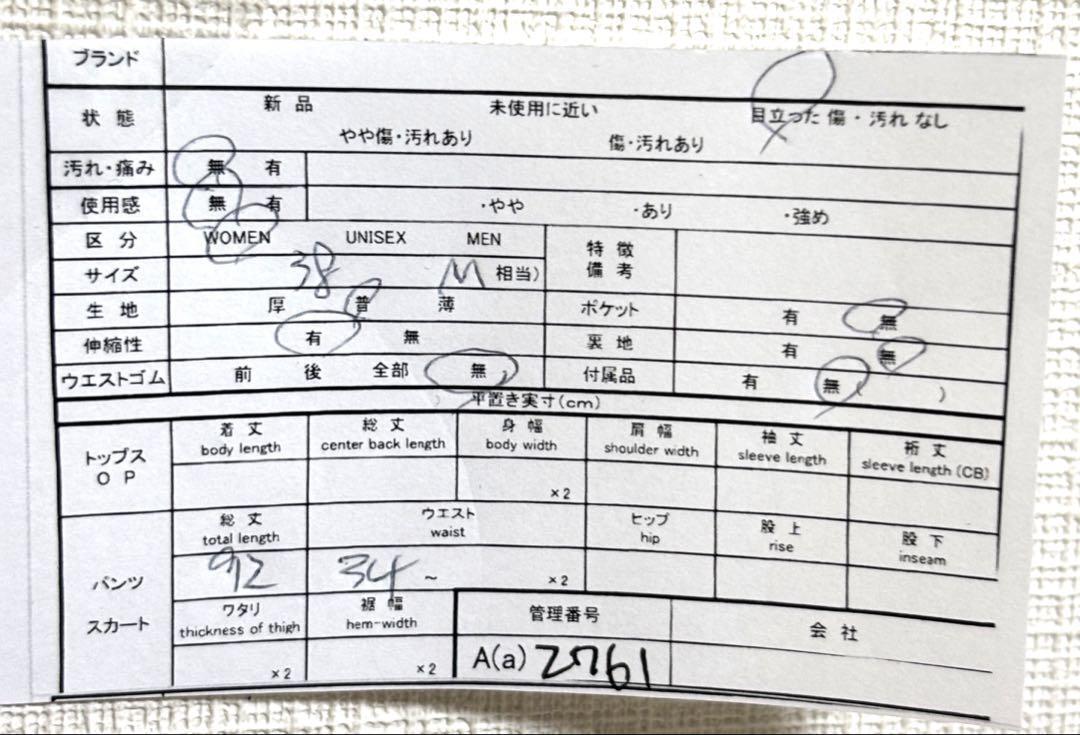 ブランド
状態 新品 未使用に近い 目立った傷・汚れなし
やや傷・汚れあり 傷・汚れあり
汚れ・痛み 無 有
使用感 無 有 ・やや ・あり ・強め
区分 WOMEN UNISEX MEN 特徴
備考
サイズ 38 M 相当)
生地 厚 普 薄 ポケット 有 無
伸縮性 有 無 裏地 有 無
ウエストゴム 前 後 全部 無 付属品 有 無( )
平置き実寸(cm)
トップス
OP
着丈 総丈 身幅 肩幅 袖丈 裄丈
body length center back length body width shoulder width sleeve length sleeve length (CB)
×2
パンツ
スカート
総丈 ウエスト ヒップ 股上 股下
total length waist hip rise inseam
92 34 ~ ×2
ワタリ 裾幅 管理番号 会社
thickness of thigh hem-width
×2 ×2 A(a) 2761